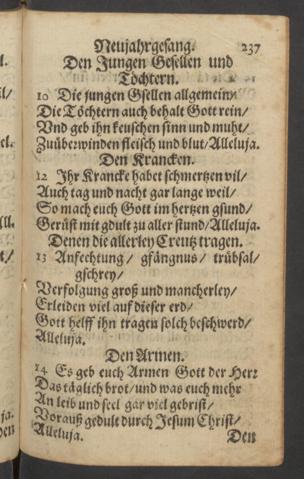 Neujahrgesang. 237
Den Jungen Gesellen und
Töchtern.
10 Die jungen Gsellen allgemein/
Die Töchtern auch behalt Gott rein/
Vnd geb ihn keuschen sinn und muht/
Zuüberwinden fleisch und blut/Alleluja.
Den Krancken.
12 Ihr Krancke habet schmertzen vil/
Auch tag und nacht gar lange weil/
So mach euch Gott im hertzen gsund/
Gerüst mit gdult zu aller stund/Alleluja.
Denen die allerley Creutz tragen.
13 Anfechtung/ gfängnus/ trübsal/
gschrey/
Verfolgung groß und mancherley/
Erleiden viel auf dieser erd/
Gott helff ihn tragen solch beschwerd/
Alleluja.
Den Armen.
14 Es geb euch Armen Gott der Herr
Das täglich brot/und was euch mehr
An leib und seel gar viel gebrist/
Vorauß gedult durch Jesum Christ/
Alleluja. Den